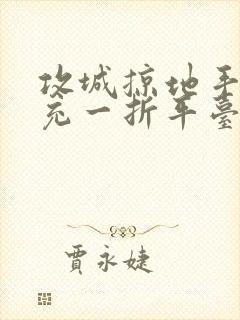 攻城掠地手
充一折平臺
賈永婕